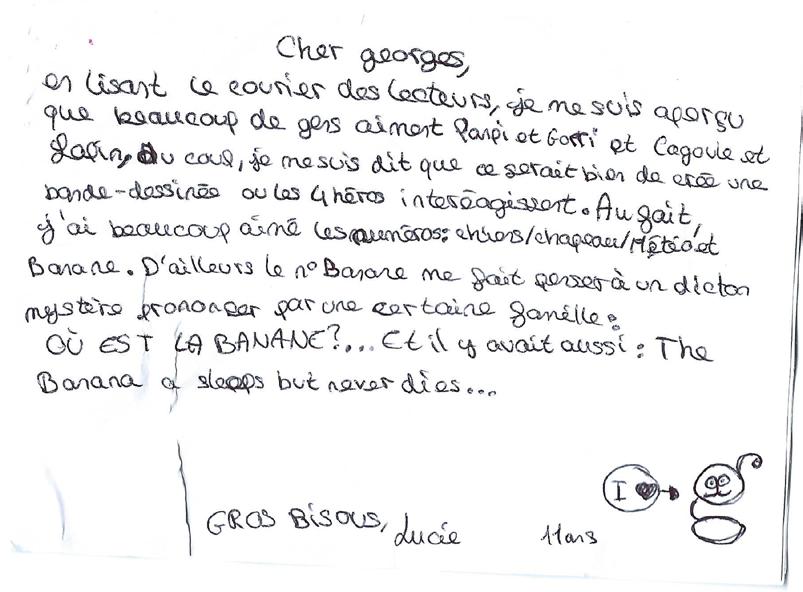 Cher georges,
en lisant le courier des lecteurs, je me suis aperçu
que beaucoup de gens aiment Panpi et Gorri et Cagoule et
Lapin, Du coup, je me suis dit que ce serait bien de crée une
bande-dessinée ou les 4 héros interéagissent. Au fait,
j'ai beaucoup aimé les numéros: chiens/chapeau/Météo et
Banane. D'ailleurs le n° Banane me fait penser à un dicton
mystère prononcer par une certaine famille:
OÙ EST LA BANANE?... Et il y avait aussi: The
Banana a sleeps but never dies...
I ♥
GROS BISOUS, Lucie 11ans